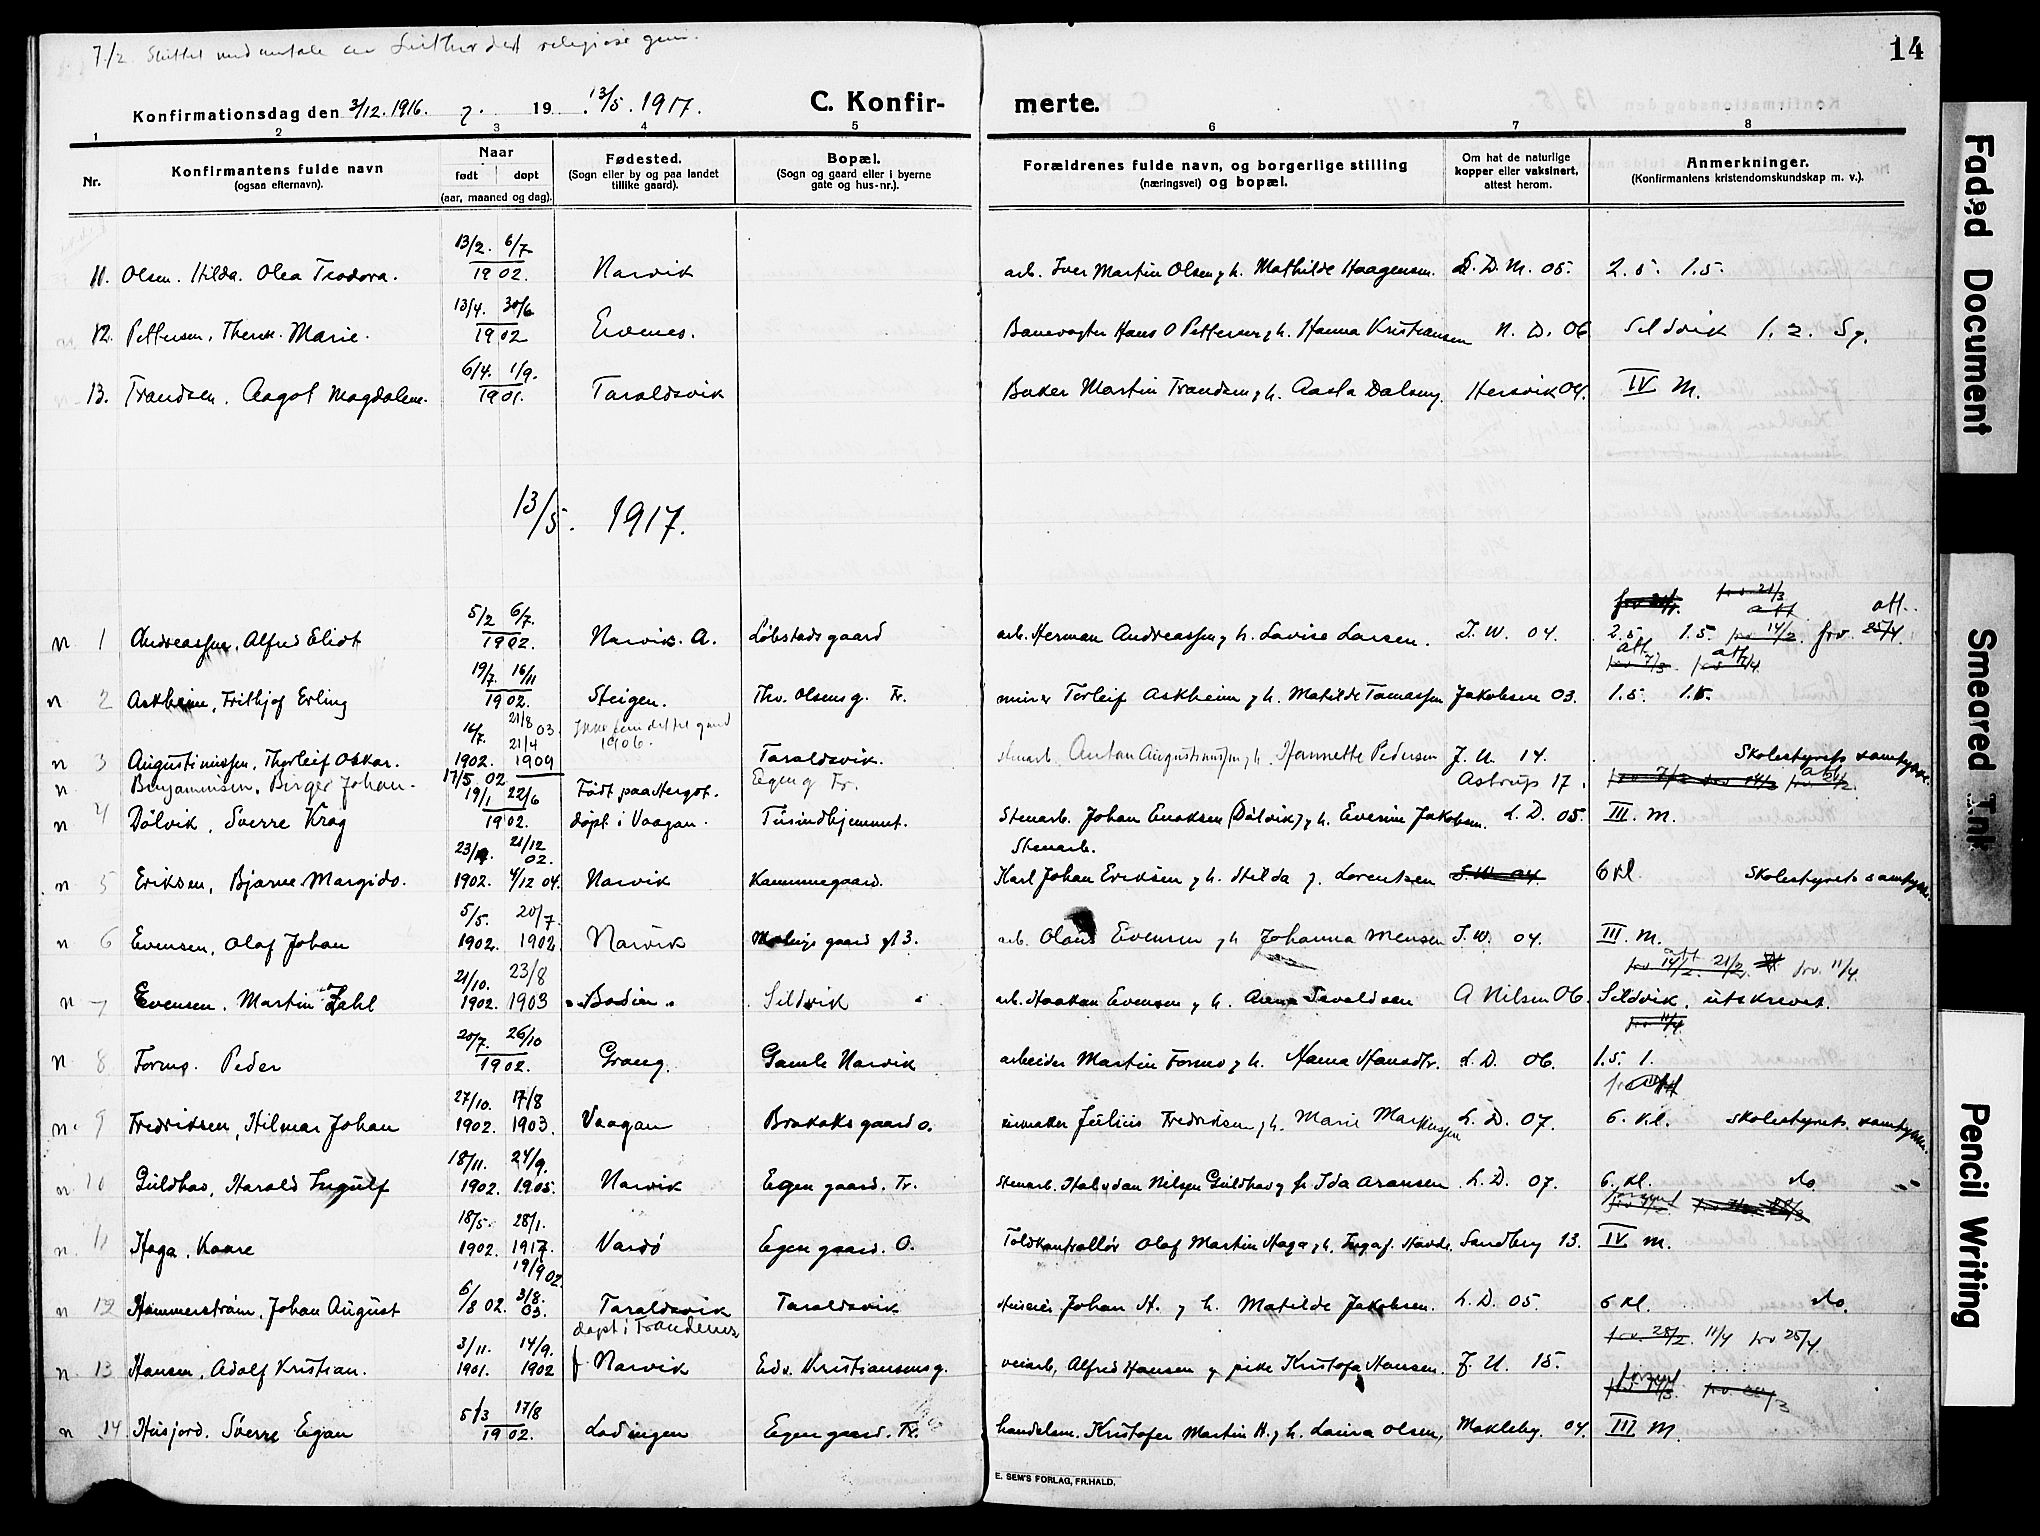 14
7/2. Sluttet med omtale av Luther det religiøse
Konfirmationsdag den 3/12. 1916. 19 13/5. 1917.
C. Konfirmerte.
1 2 3 4 5 6 7 8
Nr.
Konfirmantens fulde navn
(ogsaa efternavn).
Naar
født døpt
(aar, maaned og dag).
Fødested.
(Sogn eller by og paa landet
tillike gaard).
Bopæl.
(Sogn og gaard eller i byerne
gate og hus-nr.).
Forældrenes fulde navn, og borgerlige stilling
(næringsvei) og bopæl.
Om hat de naturlige
kopper eller vaksinert,
attest herom.
Anmerkninger.
(Konfirmantens kristendomskundskap m. v.).
13/2. 6/7
11. Olsen. Hilda. Olea Teodora. 1902. Narvik arb. Iver Martin Olsen g h. Mathilde Haagensen. D. M. 05. 2.5. 1.5.
13/4. 30/6
12. Pettersen, Marie. 1902 Evenes. Banevogter Hans O Pettersen g h. Hanna Kristiansen N. D. 06 Sildvik 1. 2. Sg.
6/4. 1/9.
13. Trandsen, Aagot Magdalene. 1901. Taraldsvik Baker Martin Trandsen g h. Aasta Dalseng. Hersvik 04. IV M.
13/5. 1917.
5/2 6/7. frv. 21/3 att att.
n 1 Andreassen, Alfred Eliot 1902. Narvik. A. Løbstads gaard arb. Herman Andreassen g h. Lovise Larsen. J. W. 04. 2.5 1.5. frv 14/2. frv. 25/4.
19/7. 16/11 att frv 7/3. att
n 2 Askheim, Frithjof Erling 1902. Steigen. Thv. Olsens g. Fr. miner Torleif Askheim g h. Matilde Tomassen Jakobsen 03. 1.5. 1.5.
16/7. 21/8 03. 21/4 Ikke fundet
1906.
n 3 Augustinussen, Thorleif Oskar. 1902. 1909 Taraldsvik. Anton Augustinussen g h. Hannette Pedersen J. U. 14. Skolestyrets samtykke.
n. Benjaminsen, Birger Johan. 17/5. 02. Egen g Fr. Astrup 17.
19/1 22/6 Født paa Hergot.
n 4 Dölvik, Sverre Krog 1902. døpt i Vaagan. Tusindhjemmet. Stenarb. Johan Enoksen (Dölvik) g h. Everine Jakobsen. L. D. 05. III. M.
21/12 02. Stenarb.
n 5 Eriksen, Bjarne Margido. 1902. 4/12 04. Narvik Kammegaard. Karl Johan Eriksen g h. Hilda J. Lorentzen J. W. 04. 6 Kl. Skolestyrets samtykke.
5/5. 20/7.
n 6 Evensen, Olaf Johan 1902. 1902 Narvik gaard arb. Olaus Evensen g h Johanna Mensen J. W. 04. III. M.
21/10. 23/8 frv 14/2. 21/2. frv. 11/4.
n 7 Evensen, Martin Zahl 1902. 1903 Bodin. Sildvik arb. Haakan Evensen g h. Anna Tavaldsen A Nilsen 06. Sildvik. utskrevet.
20/7. 26/10 frv 11/4
n 8 Formo. Peder 1902. Grong. Gamle Narvik arbeider Martin Formo g h. Hanna Hansdtr. L. D. 06. 1.5. 1.
27/10. 17/8
n. 9 Fredriksen, Hilmar Johan 1902. 1903. Vaagan Brokaks gaard O. Julius Fredriksen g h. Marie Markussen L. D. 07. 6. Kl. Skolestyrets. samtykke.
18/11. 24/9.
n 10 Guldhav, Harald Ingulf 1902. 1905. Narvik Egen gaard. Fr. Stenarb. Halvdan Nilsen Guldhav g h Ida Aronsen L. D. 07. 6. Kl. do
18/5. 28/1.
n. 11 Haga, Kaare 1902. 1917. Vardö Egen gaard. O. Toldkontrollör Olaf Martin Haga g h. Ingaf. Havde. Sandberg 13. IV M.
19/9 02.
n 12 Hammerström, Johan August 6/8 02. 3/8. 03. Taraldsvik Taraldsvik Huseier Johan H. g h. Matilde Jakobsen. L. D. 05. 6 Kl. do.
døpt i Trandenes
3/11. 14/9. frv. 28/2. 11/4 frv 25/4
n 13 Hansen, Adolf Kristian. 1901. 1902 f Narvik Edv. Kristiansens g. veiarb, Alfred Hansen g pike Kristofa Hansen. J. U. 15.
5/3 17/8
n 14 Husjord. Sverre Egan 1902. Lödingen Egen gaard. Fr. handelsm. Kristofer Martin H. g h. Laura Olsen, Makleby. 04. III M.
E. SEM'S FORLAG, FR.HALD.
Faded Document
Smeared Ink
Pencil Writing